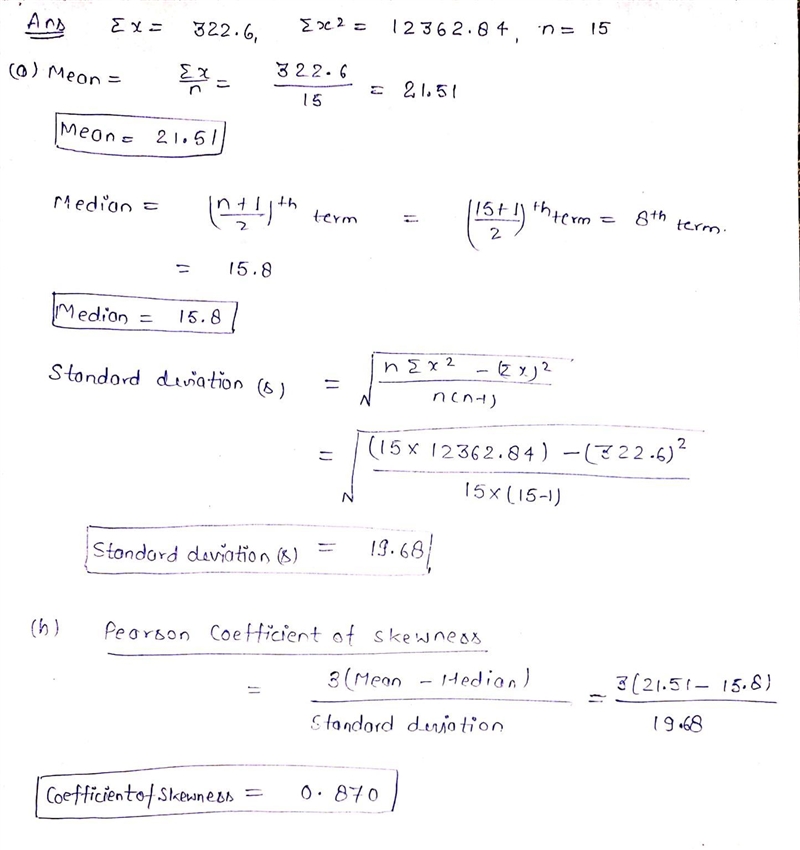 Ans Σx = 322.6, Σx² = 12362.84, n = 15
(a) Mean = Σx/n = 322.6/15 = 21.51
Mean = 21.51
Median = (n+1/2)th term = (15+1/2)th term = 8th term.
= 15.8
Median = 15.8
Standard deviation (s) = √(nΣx² - (Σx)²/n(n-1))
= √((15 × 12362.84) - (322.6)²/15×(15-1))
Standard deviation (s) = 19.68
(b) Pearson Coefficient of skewness
= 3(Mean - Median)/Standard deviation = 3(21.51 - 15.8)/19.68
Coefficient of Skewness = 0.870